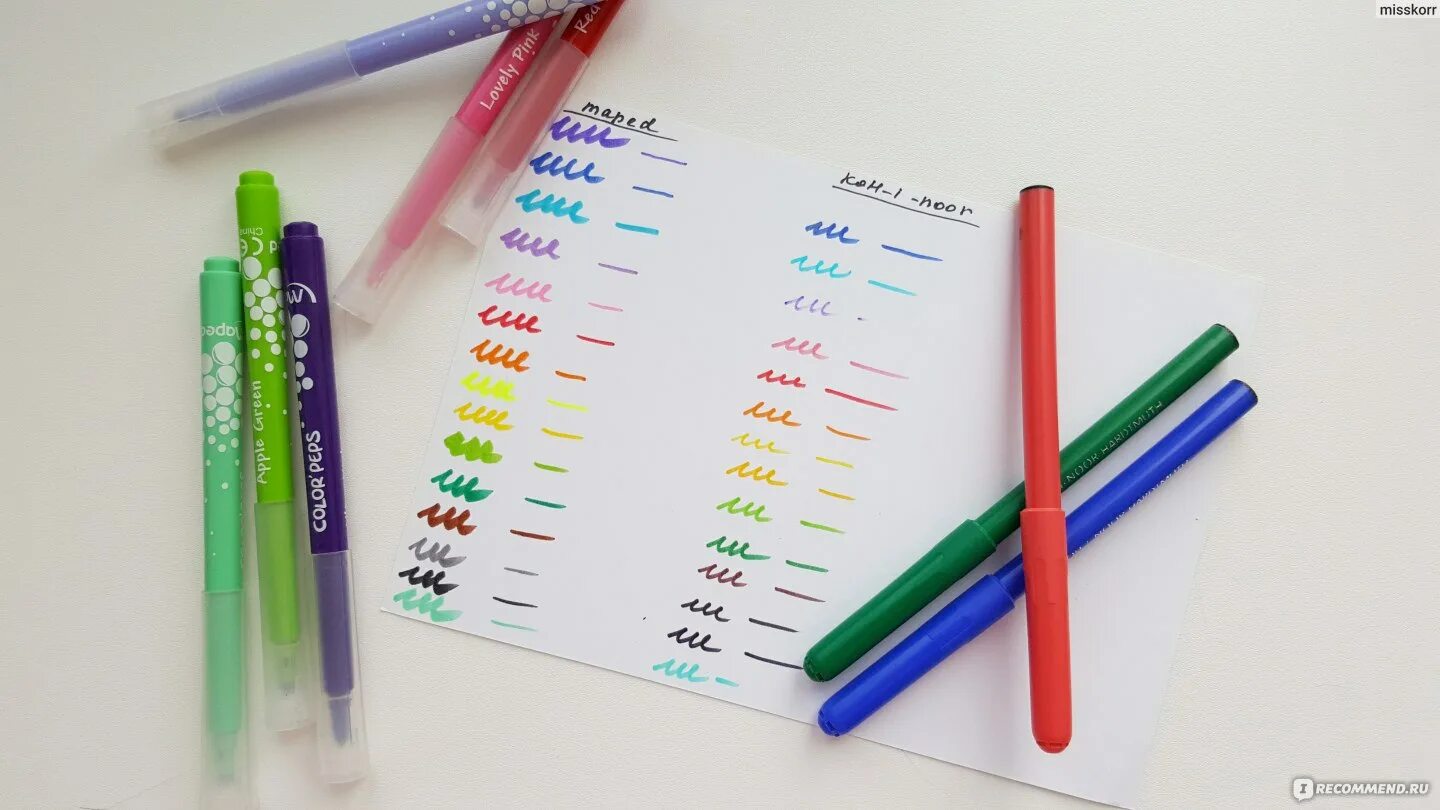 misskorr
Lovely Pink
Red
maped
KOH-I-NOOR
China
Apple Green
COLOR'PEPS
-NOOR-HARDTMUTH
RECOMMEND.RU